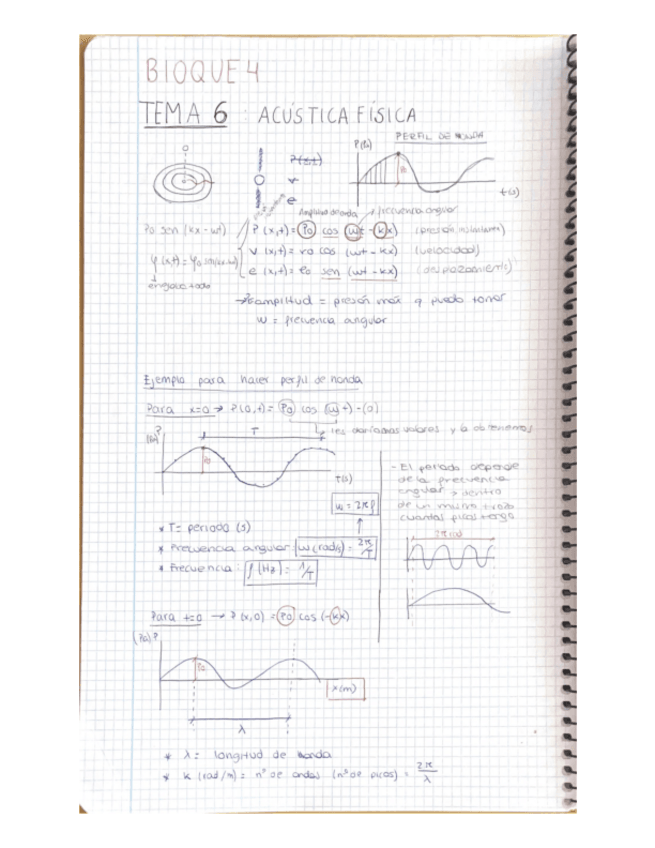 BLOQUE 4
TEMA 6: ACÚSTICA FÍSICA
PERFIL DE MONDA
P(Pa)
P(x,t)
v
e
Po
t(s)
Amplitud de onda
frecuencia angular
Po sen (kx - wt)
P (x,t) = Po cos (wt - kx) (presión instantánea)
v (x,t) = vo cos (wt - kx) (velocidad)
φ(x,t) = φo sen(kx-wt)
e (x,t) = eo sen (wt - kx) (desplazamiento)
engloba todo
→ amplitud = presión max q puedo tomar
w = frecuencia angular
Ejemplo para hacer perfil de monda
Para x=0 → P(0,t) = Po cos (wt) - (0)
les daríamos valores y la obtenemos
P
(Pa)
T
Po
T(s)
- El periodo depende
de la frecuencia
angular > dentro
de un mismo trozo
cuantos picos tengo
w = 2πf
* T = periodo (s)
* Frecuencia angular: w (rad/s) = 2π/T
* Frecuencia: f (Hz) = 1/T
2π rad
Para t=0 → P (x,0) = Po cos (-kx)
(Pa) P
Po
x(m)
λ
* λ = longitud de monda
* k (rad/m) = nº de ondas (nº de picos) = 2π/λ